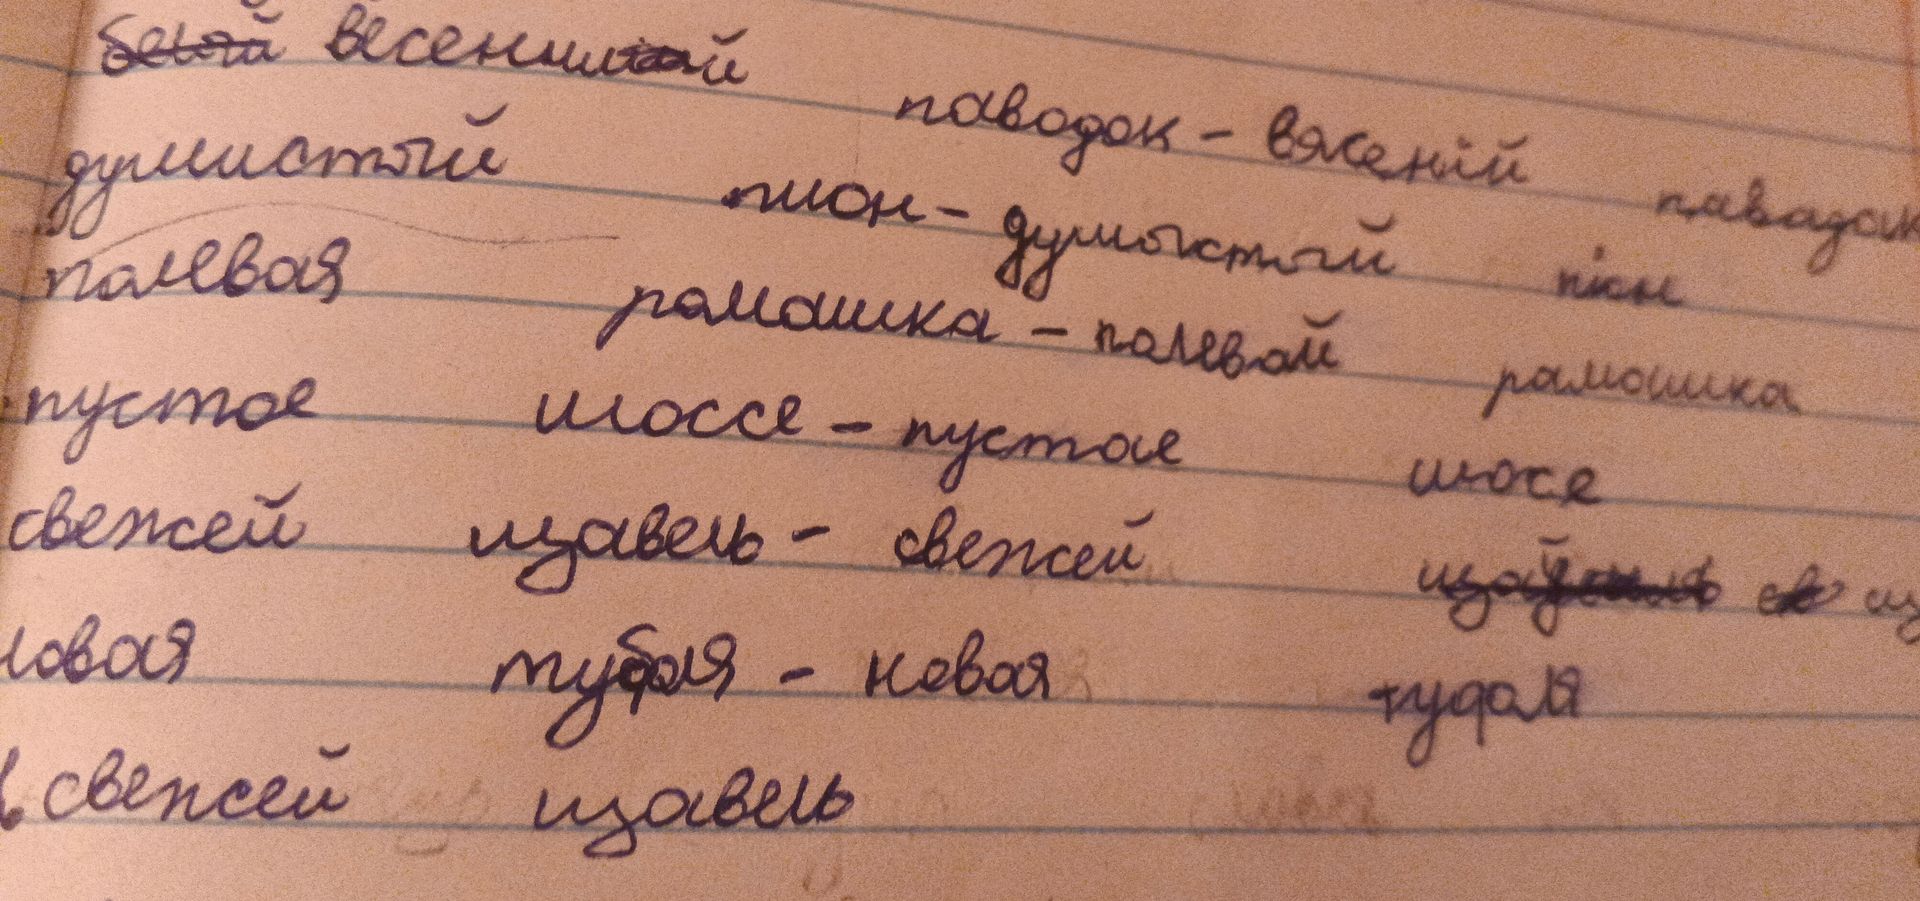 весенний паводок - вясеній павадак
думистый пион - думыстый піон
полевая ромашка - палевай рамошка
пустое шоссе - пустое шосе
свежей щавель - свежей щ
новая туфля - новая туфля
свежей щавель